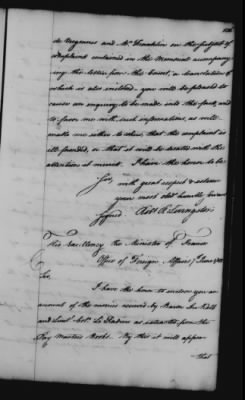 de Negrems and Mr. Donaldson on the subject of
Complaint contained in the Memorial accompany
ing the letter from the Count, a translation of
which is also enclosed. you will be pleased to
cause an enquiry to be made into the facts, and
to favor me with such information, as will
make me either to shew that the complaint is
ill founded, or that it will be treated with the
attention it merits. I have the honor to be
Sir, with great respect & esteem
your most obt humble servant
Signed Robt R Livingston
His Excellency the Minister of France
Office of Foreign Affairs 7 June
Sir,
I have the honor to enclose you an
amount of the monies received by Baron de Kalb
and Lieut. Colo. La Radiere as extracted from the
Pay Masters Books. By this it will appear
that